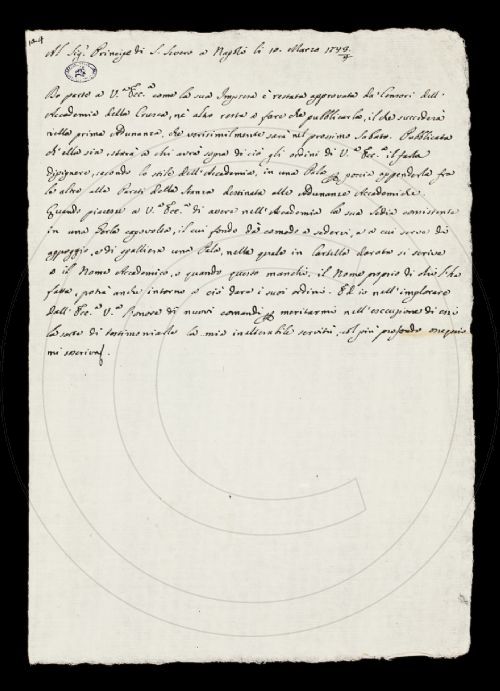 Al Sig.r Principe di S. Severo a Napoli li 10. Marzo 174
Do parte a V.ra Ecc.a come la sua Impresa è restata approvata da' Censori dell'
Accademia della Crusca, nè altro resta a fare che pubblicarla, il che succederà
nella prima Adunanza, che verisimilmente sarà nel prossimo Sabato. Pubblicata
ch'ella sia, starà a chi avrà sopra di ciò gli ordini di V.a Ecc.a il farla
dipignere, secondo lo stile dell'Accademia, in una Pala e poscia appenderla fra
le altre alle Pareti della Stanza destinata alle Adunanze Accademiche.
Quando piacesse a V.a Ecc.a di avere nell'Accademia la sua Sedia consistente
in una Gerla capovolta, il cui fondo dà comodo a sedervi, e a cui serve di
appoggio, e di spalliera una Pala, nella quale in Cartella dorata si scrive
o il Nome Accademico, o quando questo manchi, il Nome proprio di chi l'ha
fatta, potrà anche intorno a ciò dare i suoi ordini. Ed io nell'implorare
dall'Ecc.a V.a l'onore di nuovi comandi p meritarmi nell'esecuzione di essi
la sorte di testimonialle la mia inalterabile servitù, col più profondo ossequio
mi soscrivo